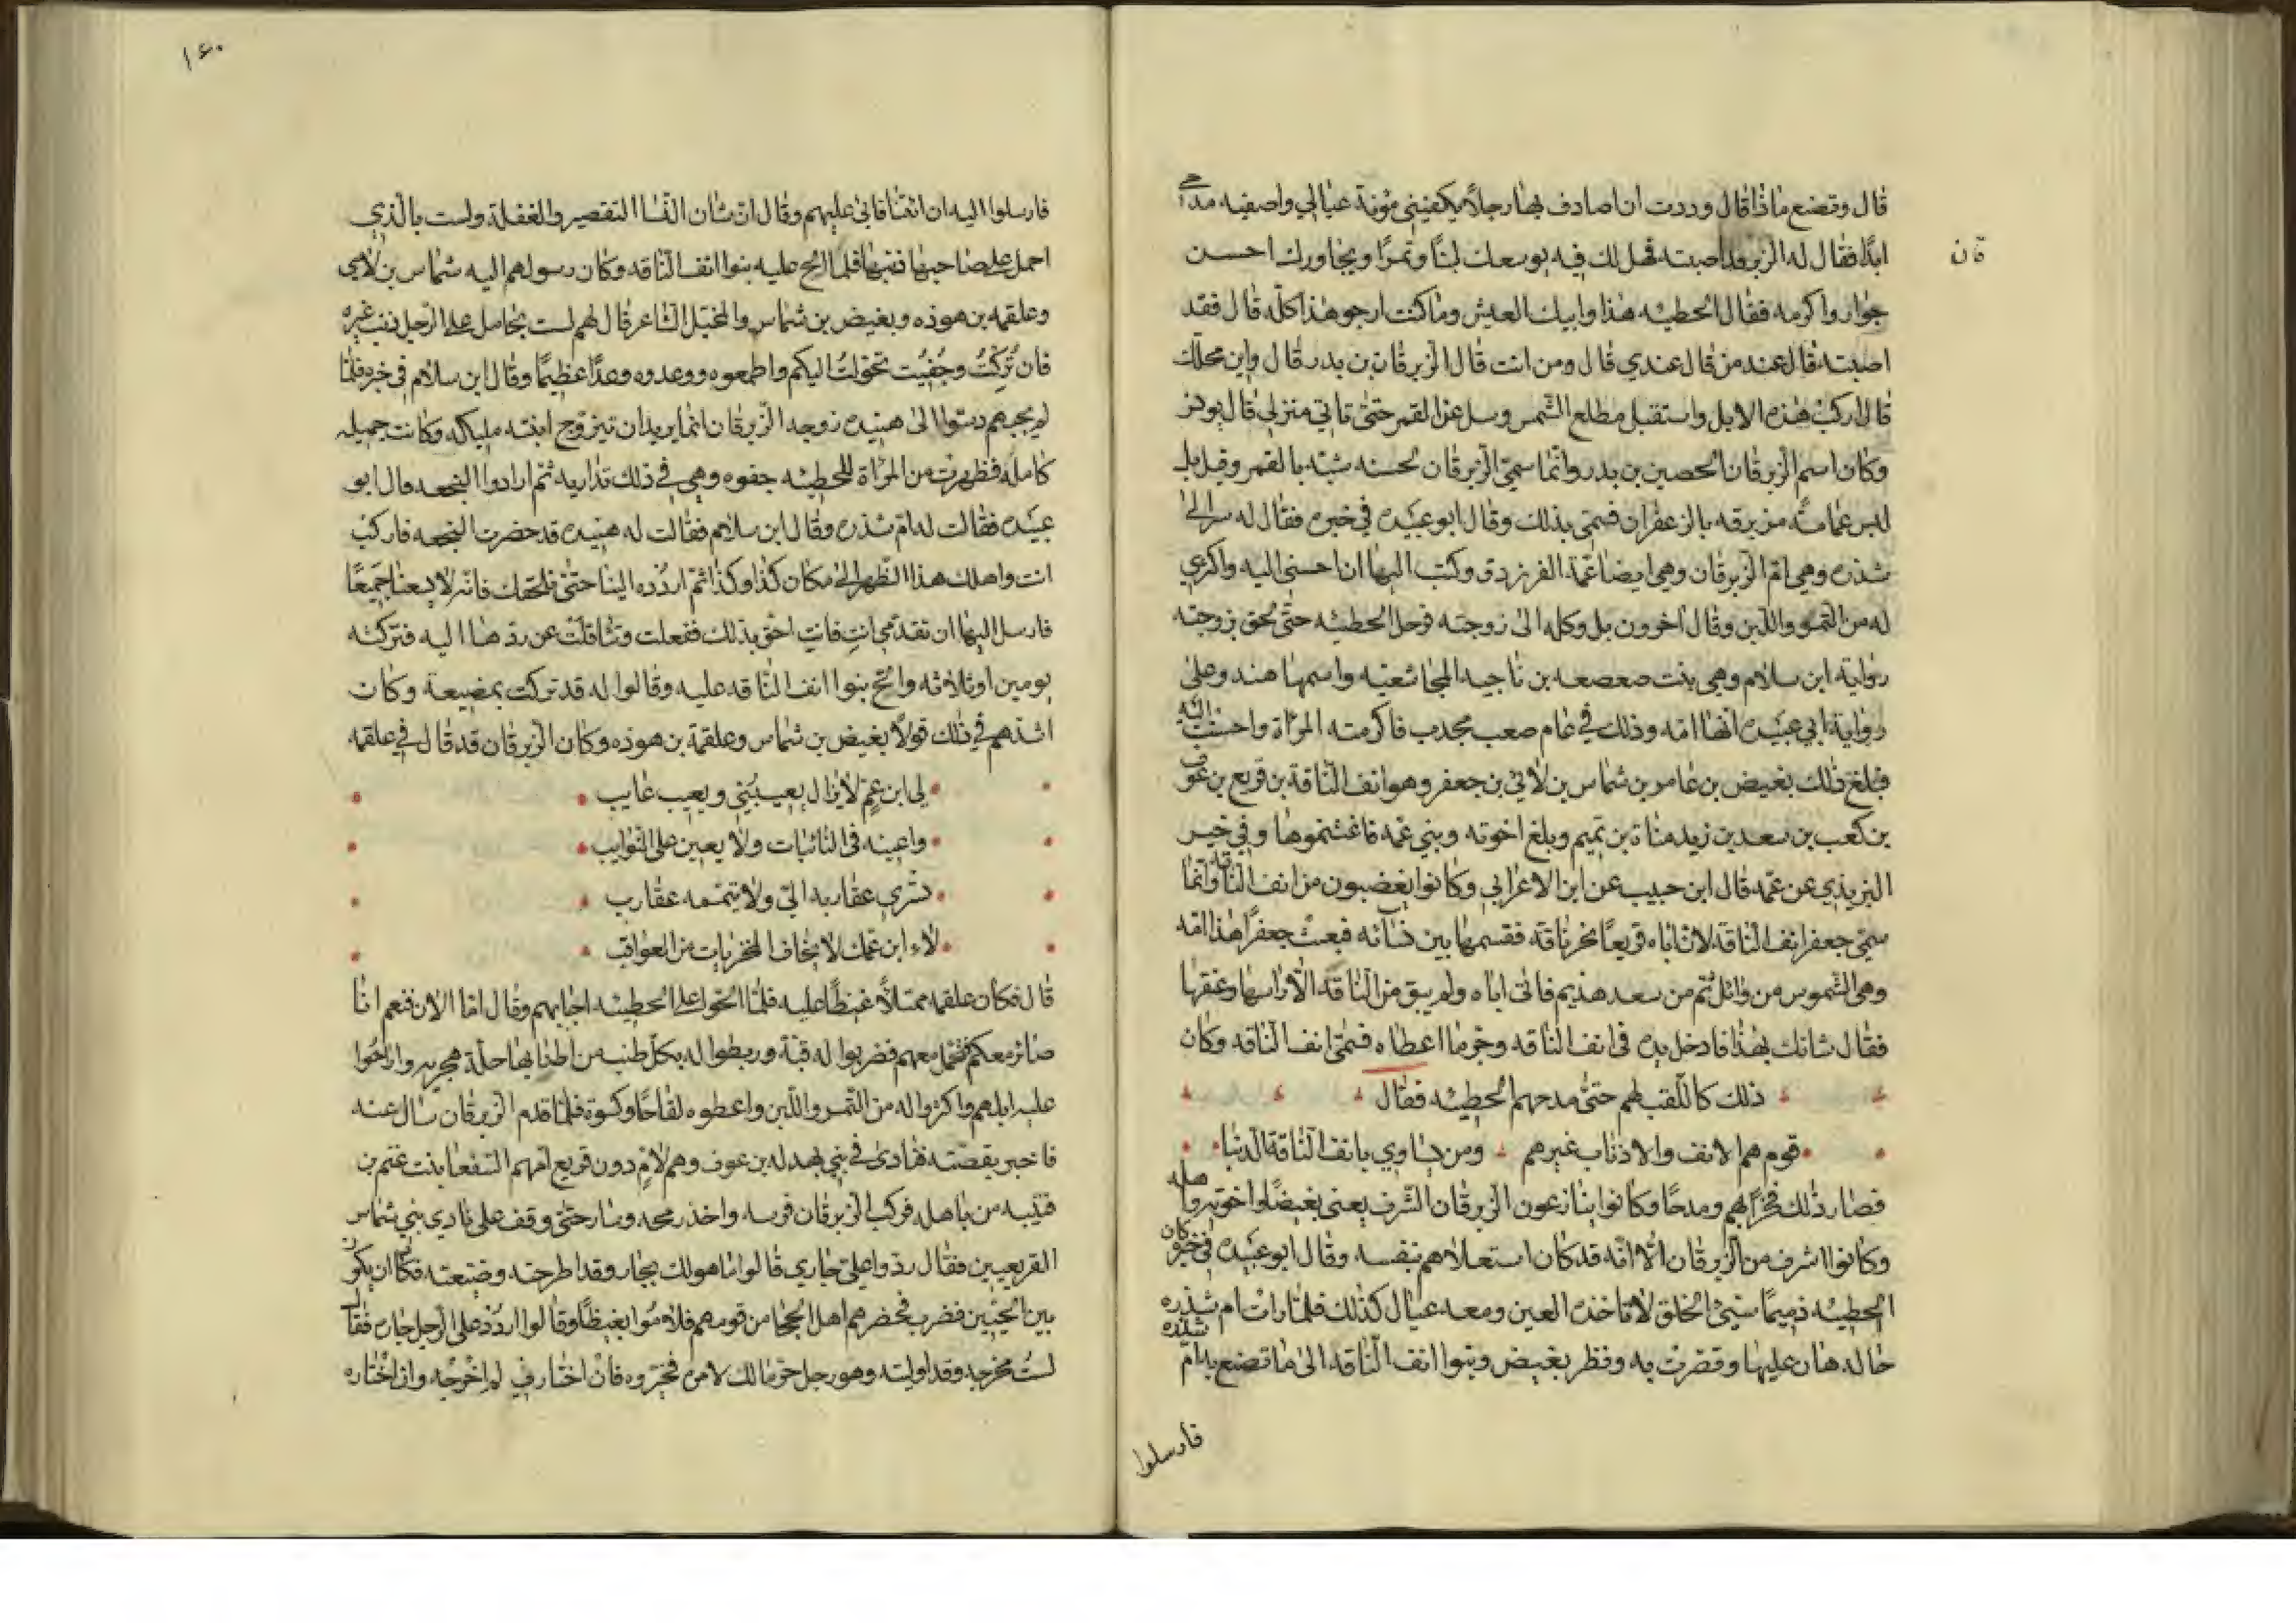 قال وتصنع ماذا قال وددت ان اصادف بها رجلاً يكفيني مؤنة عيالي واصفيه مدحي
ابدًا فقال له الزبرقان قد اصبته فهل لك فيه يوسعك لبنًا وتمرًا ويجاورك احسن
جوار واكرمه فقال الحطيئه هذا وابيك العيش وما كنت ارجو هذا كله قال فقد
اصبته قال عند من قال عندي قال ومن انت قال الزبرقان بن بدر قال واين محلك
قال اركب هذه الابل واستقبل مطلع الشمس وسل عن القمر حتى تاتي منزلي قال يونس
وكان اسم الزبرقان الحصين بن بدر وانما سمي الزبرقان لحسنه شبه بالقمر وقيل بل
لبس عمامة مزبرقه بالزعفران فسمي بذلك وقال ابو عبيده في خبره فقال له سر الى
شذره وهي ام الزبرقان وهي ايضا عمة الفرزدق وكتب اليها ان احسني اليه واكثري
له من التمر واللبن وقال آخرون بل وكله الى زوجته فرحل الحطيئه حتى لحق بزوجته
رواية ابن سلام وهي بنت صعصعه بن ناجيه المجاشعيه واسمها هند وعلى
رواية ابي عبيده انها امه وذلك في عام صعب مجدب فاكرمته المراة واحسنت اليه
فبلغ ذلك بغيض بن عامر بن شماس بن لاي بن جعفر وهو انف الناقة بن قريع بن عوف
بن كعب بن سعد بن زيد مناة بن تميم وبلغ اخوته وبني عمه فاغتنموها وفي خبر
اليزيدي عن عمه قال ابن حبيب عن ابن الاعرابي وكانوا يغضبون من انف الناقه وانما
سمي جعفر انف الناقة لان اباه قريعًا نحر ناقة فقسمها بين نسائه فبعث جعفرًا هذا امه
وهي الشموس من وائل ثم من سعد هذيم فاتى اباه ولم يبق من الناقة الا راسها وعنقها
فقال شانك بهذا فادخل يده في انف الناقه وجر ما اعطاه فسمي انف الناقه وكان
ذلك كاللقب لهم حتى مدحهم الحطيئه فقال
قوم هم الانف والاذناب غيرهم ومن يساوي بانف الناقة الذنبا
فصار ذلك فخرًا لهم ومدحًا وكانوا ينازعون الزبرقان الشرف يعني بغيضًا واخوته واهله
وكانوا اشرف من الزبرقان الا انه قد كان استعلاهم بنفسه وقال ابو عبيده في خبره كان
الحطيئه دميمًا سيئ الخلق لا تاخذه العين ومعه عيال كذلك فلما رات ام شذره
حاله هان عليها وقصرت به ونظر بغيض وبنوا انف الناقه الى ما تصنع به ام شذره
فارسلوا
قان
١٤٠
فارسلوا اليه ان ائتنا فابى عليهم وقال ان شان النساء التقصير والغفلة ولست بالذي
احمل على صاحبها ذنبها فلما الح عليه بنوا انف الناقه وكان رسولهم اليه شماس بن لاي
وعلقمه بن هوذه وبغيض بن شماس والمخبل الشاعر قال لهم لست بحامل على الرجل ذنب غيره
فان تُرِكْتُ وجُفِيْتُ تحولتُ اليكم واطمعوه ووعدوه وعدًا عظيمًا وقال ابن سلام في خبره فلما
لم يجبهم دسوا الى هنيده زوجه الزبرقان انما يريد ان يتزوج ابنته مليكه وكانت جميله
كاملة فظهرت من المراة للحطيئه جفوه وهي في ذلك تداريه ثم ارادوا النجعه قال ابو
عبيده فقالت له ام شذره وقال ابن سلام فقالت له هنيده قد حضرت النجعه فاركب
انت واهلك هذا الظهر الى مكان كذا وكذا ثم اردُده الينا حتى نلحقك فانه لا يسعنا جميعًا
فارسل اليها ان تقدمي انتِ فانتِ احق بذلك ففعلت وتثاقلت عن ردها اليه فتركته
يومين او ثلاثه والح بنوا انف الناقه عليه وقالوا له قد تركت بمضيعة وكان
اشدهم في ذلك قولًا بغيض بن شماس وعلقمة بن هوذه وكان الزبرقان قد قال في علقمه
لي ابن عم لا يزال يعيبني ويعيب عايب
واعينه في النائبات ولا يعين على النوايب
تسري عقاربه الي ولا يتمه عقارب
لاه ابن عمك لا يخاف المخزيات من العواقب
قال فكان علقمه ممتلاً غيظًا عليه فلما الحوا على الحطيئه اجابهم وقال اما الان فنعم انا
صائر معكم فتحمل معهم فضربوا له قبة وربطوا له بكل طنب من اطنابها حلة هجريه واراحوا
عليه ابلهم واكثروا له من التمر واللبن واعطوه لقاحًا وكسوة فلما قدم الزبرقان سال عنه
فاخبر بقصته فنادى في بني بهدله بن عوف وهم لامٍ دون قريع امهم السفعا بنت غنم بن
قتيبه من باهله فركب الزبرقان فرسه واخذ رمحه وسار حتى وقف على نادي بني شماس
القريعيين فقال ردوا علي جاري قالوا ما هو لك بجار وقد اطرحته وضيعته فكاد ان يكون
بين الحيين فضرب فحضرهم اهل الحجا من قومهم فلاموا بغيظًا وقالوا اردُد على الرجل جاره فقال
لستُ مخرجه وقد اويته وهو رجل حر مالك لامره فخيروه فان اختارني لم اخرجه وان اختاره